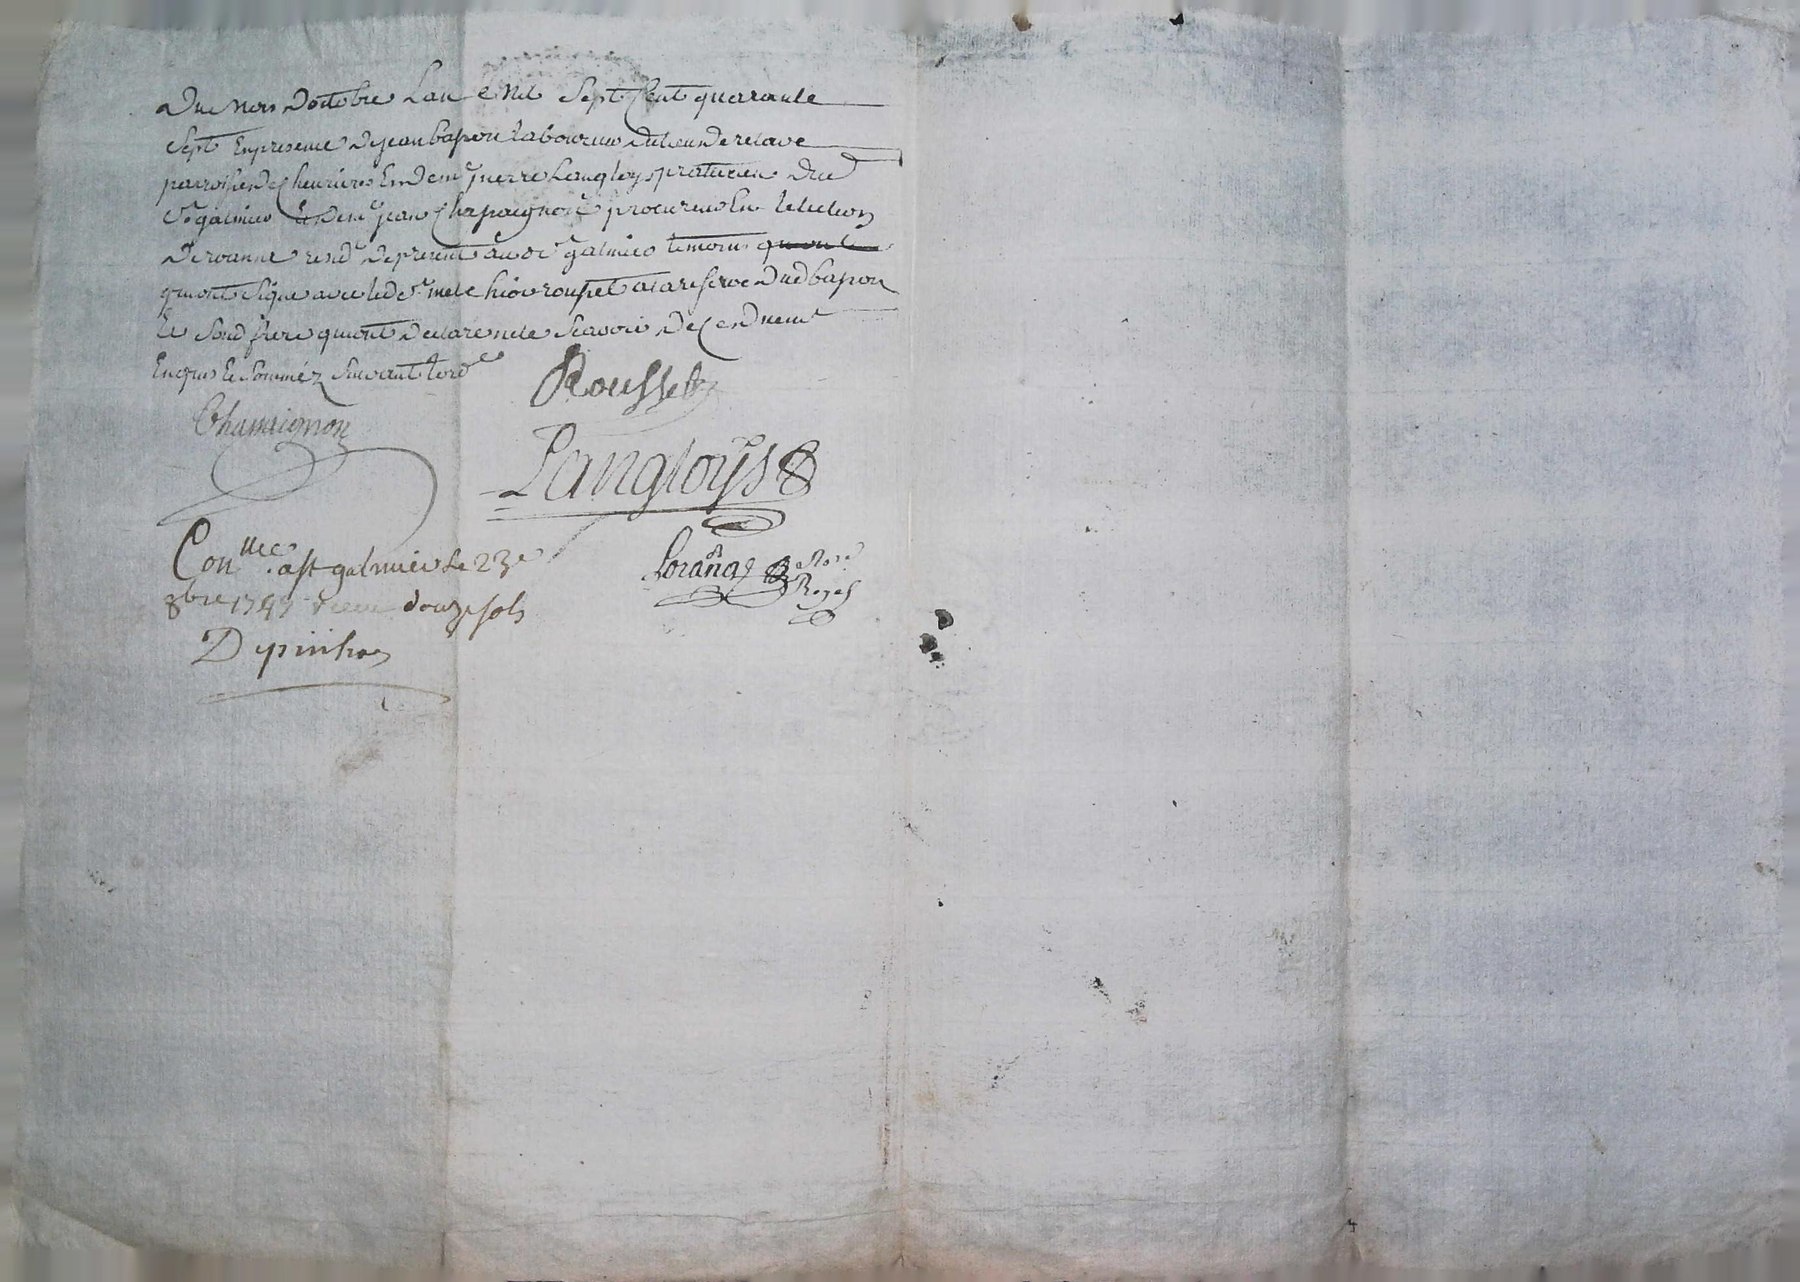 du mois doctobre Lan mil Sept Cent quarante
Sept En presence de jean bapon Laboureur du lieu de relave
parroisse de Chevrieres Et de me pierre Langloys praticien dud
St galmier Et de me jean Chapaignon procureur En lelection
de roanne resid de present aud St galmier temoins
qui ont signe avec led Sr melchior rousset a la reserve dud bapon
Et Sond frere qui ont declare ne le scavoir de Ce duement
Enquis Et Sommez Suivant lord
Rousset
Langloys
Conlle a st galmier le 23e
8bre 1747 douze sols
Depinhac
Note
Royal